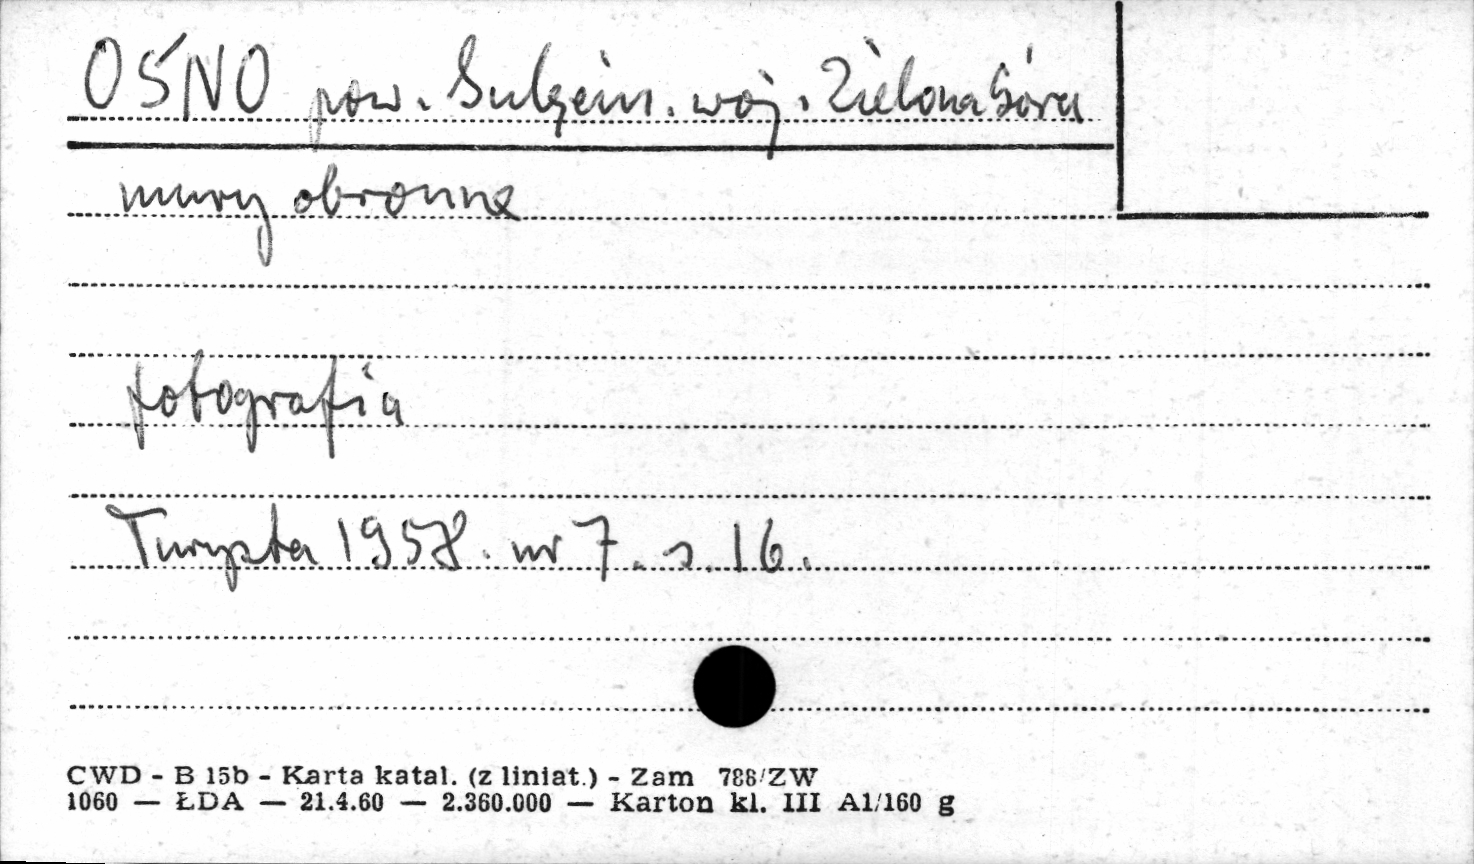 OŚNO pow. Sulęcin. woj. Zielona Góra
mury obronne
fotografia
Turysta 1958. nr 7. s. 16.
CWD - B 15b - Karta katal. (z liniat.) - Zam 788/ZW
1060 — ŁDA — 21.4.60 — 2.360.000 — Karton kl. III A1/160 g